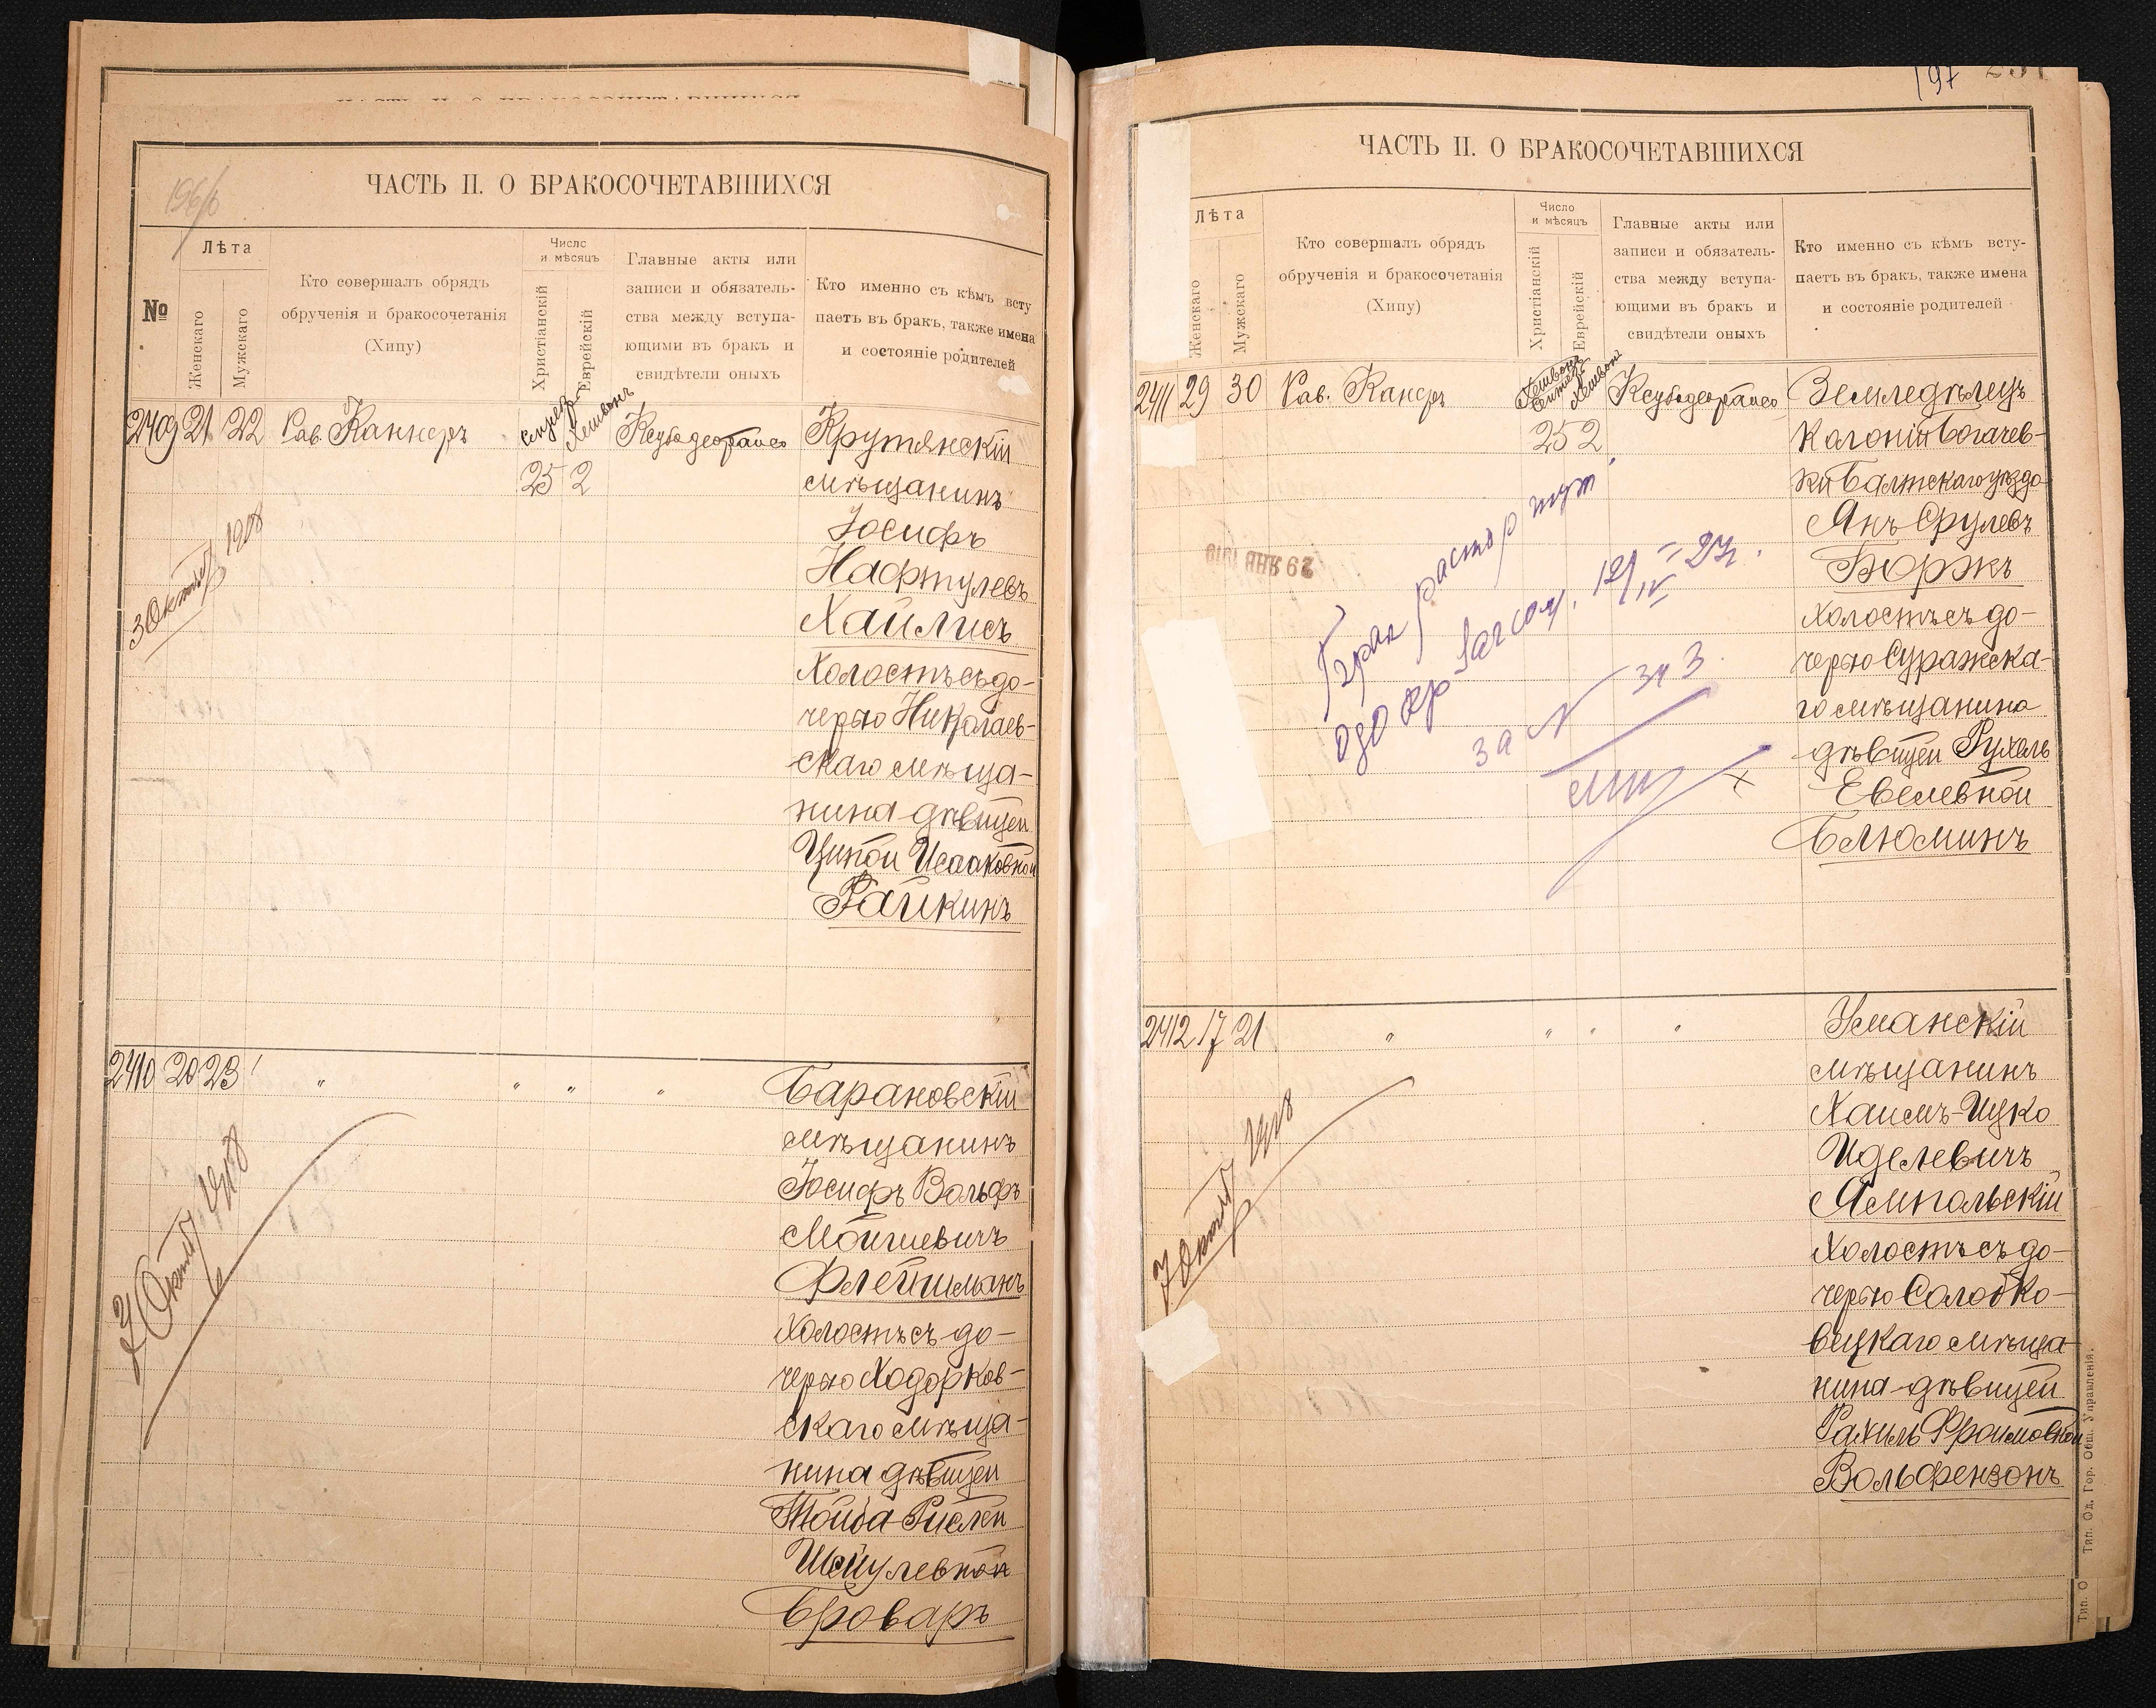 ЧАСТЬ II. О БРАКОСОЧЕТАВШИХСЯ
196/б
№
Лѣта
Женскаго
Мужскаго
Кто совершалъ обрядъ
обрученія и бракосочетанія
(Хипу)
Число
и мѣсяцъ
Христіанскій
Еврейскій
Главные акты или
записи и обязатель-
ства между вступа-
ющими въ бракъ и
свидѣтели оныхъ
Кто именно съ кѣмъ всту
паетъ въ бракъ, также имена
и состояніе родителей
2409 21 22 Рав. Каннеръ
Хешвонъ
25 2
Крутянскій
мѣщанинъ
Іосифъ
Нафтулевъ
Хайлисъ
Холостъ съ до-
черью Николаев-
скаго мѣща-
нина дѣвицей
Ципой Исааковной
Райкинъ
1918
2410 20 23 " " " "
Барановскій
мѣщанинъ
Іосифъ Вольфъ
Мойшевичъ
Флейшманъ
Холостъ съ до-
черью Ходорков-
скаго мѣща-
нина дѣвицей
Тойба-Рислей
Шаулевной
Броваръ
197
ЧАСТЬ II. О БРАКОСОЧЕТАВШИХСЯ
Лѣта
Женскаго
Мужскаго
Кто совершалъ обрядъ
обрученія и бракосочетанія
(Хипу)
Число
и мѣсяцъ
Христіанскій
Еврейскій
Главные акты или
записи и обязатель-
ства между вступа-
ющими въ бракъ и
свидѣтели оныхъ
Кто именно съ кѣмъ всту-
паетъ въ бракъ, также имена
и состояніе родителей
2411 29 30 Рав. Канеръ
Хешвонъ
25 2
Земледѣлецъ
Колоніи Богачев-
ки Балтскаго уѣзда
Янъ Срулевъ
Боржъ
Холостъ съ до-
черью Суражска-
го мѣщанина
дѣвицей Рухель
Евелевной
Блюминъ
29 ЯНВ 1919
Брак расторгнут
за N 343
2412 17 21 " " " "
Уманскій
мѣщанинъ
Хаимъ-Ицко
Иделевичъ
Ямпольскій
Холостъ съ до-
черью Солобко-
вецкаго мѣща-
нина дѣвицей
Рахиль Фроимовной
Вольфензонъ
Тип. Од. Гор. Общ. Управленія.
Тип. О